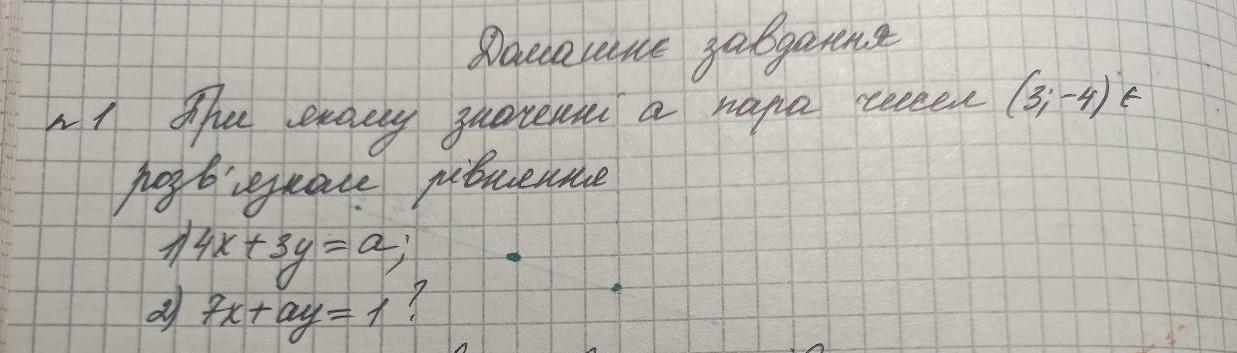 Домашнє завдання
№1 При якому значенні а пара чисел (3;-4) є
розв'язком рівняння
1) 4x+3y=a;
2) 7x+ay=1?